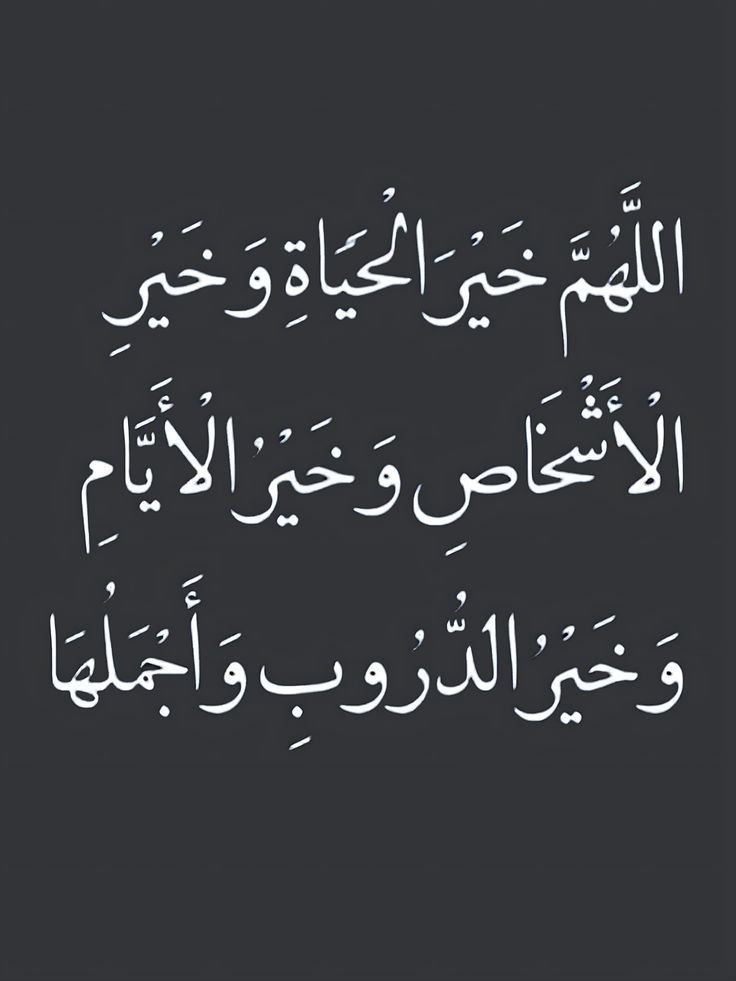 اللَّهُمَّ خَيْرَ الْحَيَاةِ وَ خَيْرِ
الْأَشْخَاصِ وَ خَيْرُ الْأَيَّامِ
وَ خَيْرُ الدُّرُوبِ وَأَجْمَلُهَا